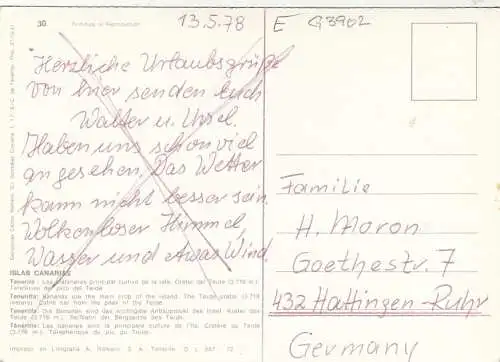 30
13.5.78
E G3902
Herzliche Urlaubsgrüße
von hier senden Euch
Walter u. Ursel.
Haben uns schon viel
angesehen. Das Wetter
kann nicht besser sein.
Wolkenloser Himmel,
Wasser und etwas Wind.
Familie
H. Moron
Goethestr. 7
432 Hattingen-Ruhr
Germany
ISLAS CANARIAS
Tenerife: Las plataneras principal cultivo de la isla. Cráter del Teide (3.718 m.)
Teleférico del pico del Teide
Tenerife: Bananas are the main crop of the island. The Teide crater (3.718
meters). Cable car from the peak of the Teide.
Teneriffa: Die Bananen sind das wichtigste Anbauprodukt der Insel. Krater des Teide
(3.718 m.). Seilbahn des Berggipfels des Teide.
Ténériffe: Las bananiers sont la principale culture de l'île. Cratère du Teide
(3.718 m.). Téléphérique du pic du Teide.